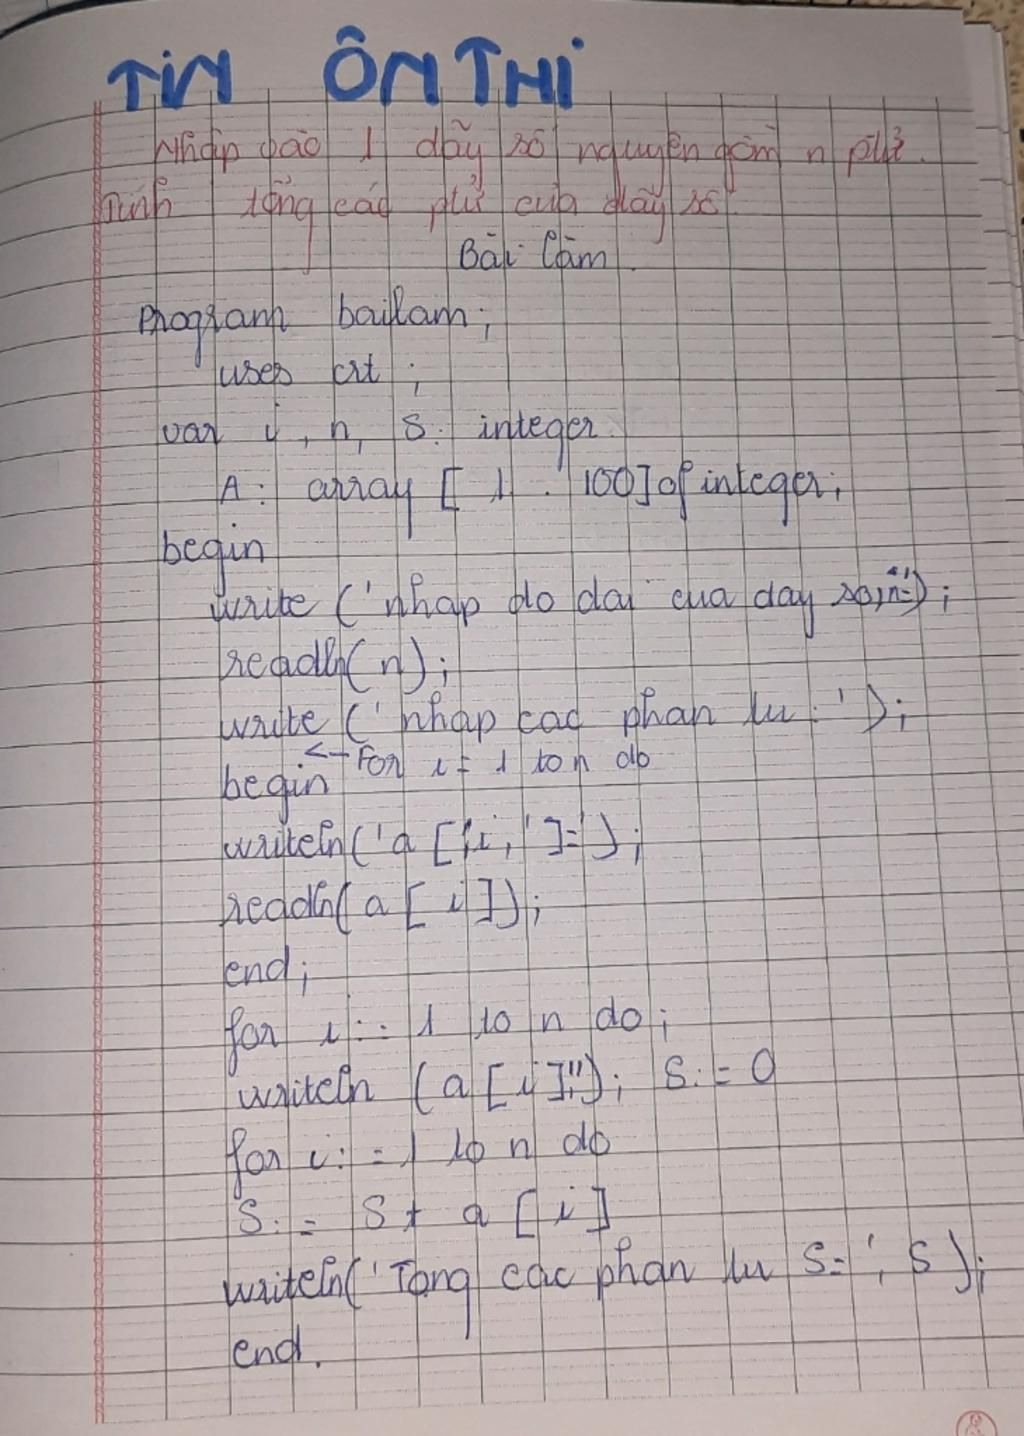 TIN ÔN THI
Nhập vào 1 dãy số nguyên gồm n ptử.
Tính tổng các ptử của dãy số.
Bài làm
Program bailam;
uses crt;
var i, n, S: integer.
A: array [ 1 . 100] of integer;
begin
write ('nhap do dai cua day so,n=');
readln(n);
write ('nhap cac phan tu :');
<- For i = 1 to n do
begin
writeln('a [',i,']=');
readln(a[i]);
end;
for i:= 1 to n do;
writeln (a[i],''); S:=0
for i:=1 to n do
S:= S + a[i]
writeln('Tong cac phan tu S=', S);
end.